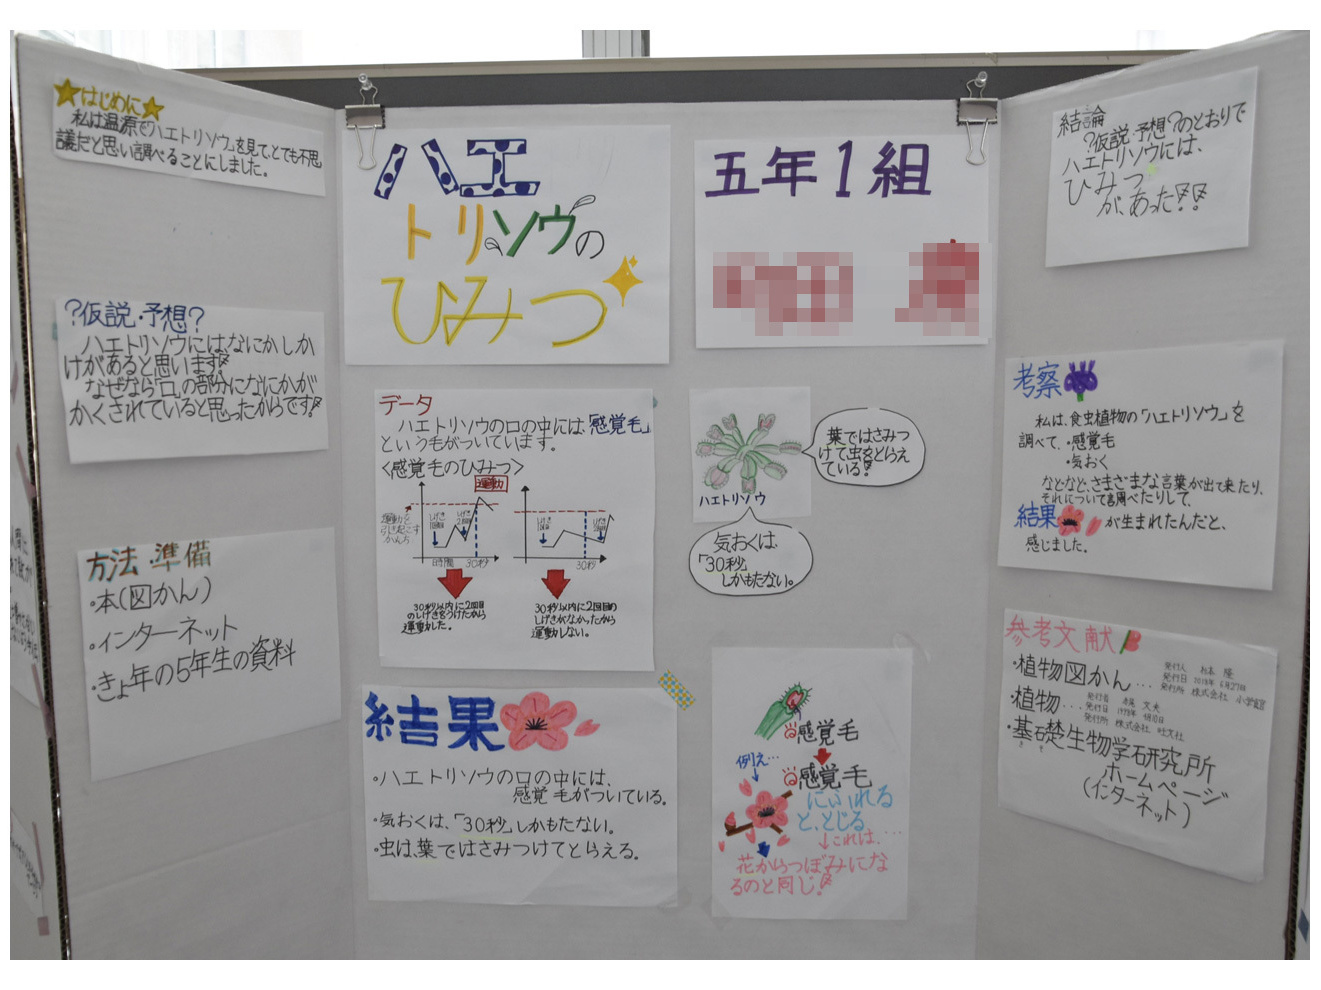 はじめに
私は温源で「ハエトリソウ」を見て、とても不思
議だと思い調べることにしました。
?仮説・予想?
ハエトリソウには、なにかしか
けがあると思います!!
なぜなら「口」の部分になにかが
かくされていると思ったからです!!
方法・準備
・本(図かん)
・インターネット
・きょ年の5年生の資料
ハエ
トリソウの
ひみつ
五年1組
データ
ハエトリソウの口の中には、「感覚毛」
という毛がついています。
<感覚毛のひみつ>
運動
運動を
引き起こす
かん方
しげき
1回目
しげき
2回目
時間
30秒
しげき
1回目
30秒
30秒以内に2回目
のしげきをうけたから
運動した。
30秒以内に2回目の
しげきがなかったから
運動しない。
ハエトリソウ
葉ではさみつ
けて、虫をとらえ
ている!!
気おくは、
「30秒」
しかもたない。
結果
・ハエトリソウの口の中には、
感覚毛がついている。
・気おくは、「30秒」しかもたない。
・虫は、葉ではさみつけてとらえる。
感覚毛
感覚毛
例え…
にふれる
と、とじる
これは、…
花からつぼみにな
るのと同じ!!
結論
?仮説・予想?のとおりで
ハエトリソウには、
ひみつ
が、あった!!
考察
私は、食虫植物の「ハエトリソウ」を
調べて、・感覚毛
・気おく
などなど、さまざまな言葉が出て来たり、
それについて調べたりして、
結果が生まれたんだと、
感じました。
参考文献
・植物図かん…
発行人 杉本 隆
発行日 2018年 6月27日
発行所 株式会社 小学館
・植物…
発行者 赤尾 文夫
発行日 1998年 4月10日
発行所 株式会社 旺文社
・基礎生物学研究所
ホームページ
(インターネット)